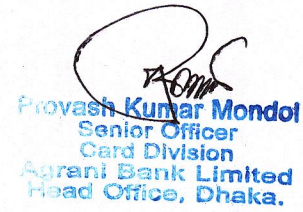 Provash Kumar Mondol
Senior Officer
Card Division
Agrani Bank Limited
Head Office, Dhaka.